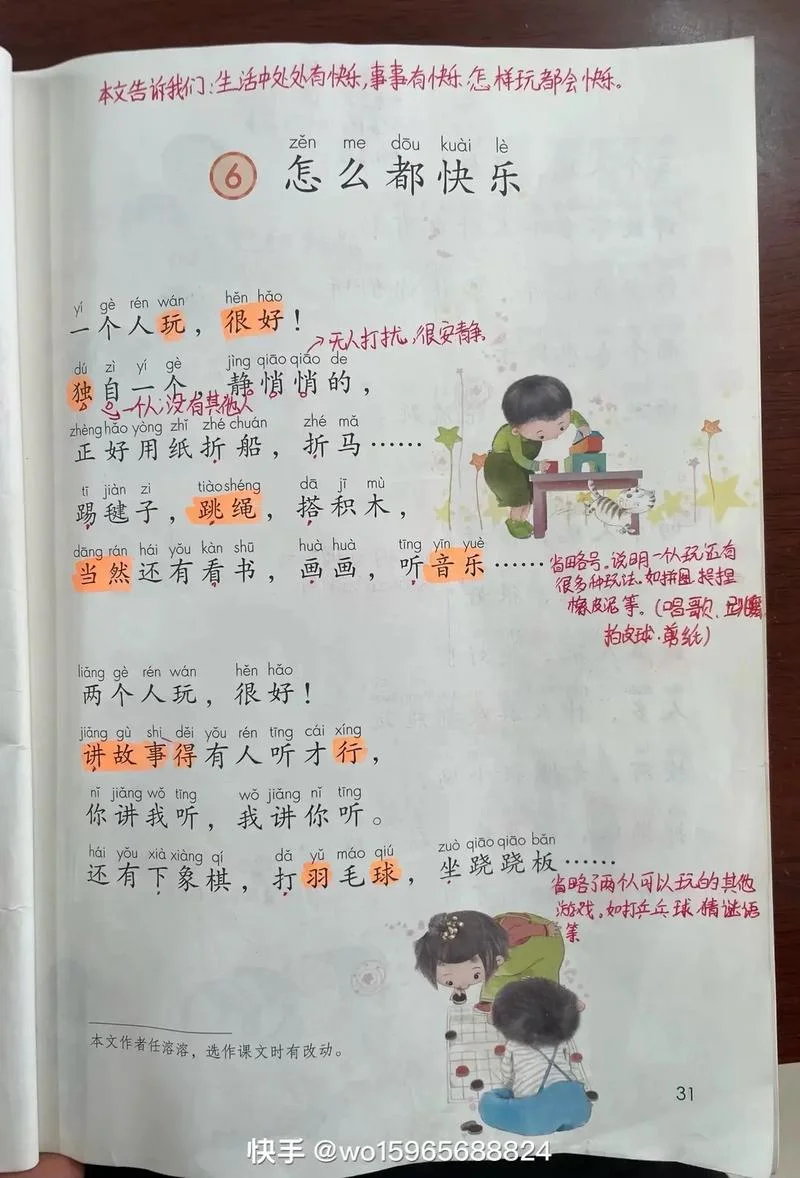 本文告诉我们:生活中处处有快乐,事事有快乐 怎样玩都会快乐。
zěn me dōu kuài lè
6 怎么都快乐
yí gè rén wán hěn hǎo
一个人玩，很好！
无人打扰,很安静
dú zì yí gè jìng qiāo qiāo de
独自一个，静悄悄的，
一个人;没有其他人
zhèng hǎo yòng zhǐ zhé chuán zhé mǎ
正好用纸折船，折马……
tī jiàn zi tiào shéng dā jī mù
踢毽子，跳绳，搭积木，
dāng rán hái yǒu kàn shū huà huà tīng yīn yuè
当然还有看书，画画，听音乐……
省略号,说明一个人玩还有
很多种玩法.如拼图 捏
橡皮泥等。(唱歌、跳舞
拍皮球·剪纸)
liǎng gè rén wán hěn hǎo
两个人玩，很好！
jiǎng gù shi děi yǒu rén tīng cái xíng
讲故事得有人听才行，
nǐ jiǎng wǒ tīng wǒ jiǎng nǐ tīng
你讲我听，我讲你听。
hái yǒu xià xiàng qí dǎ yǔ máo qiú zuò qiāo qiāo bǎn
还有下象棋，打羽毛球，坐跷跷板……
省略了两个人可以玩的其他
游戏,如打乒乓球 猜谜语
等
本文作者任溶溶，选作课文时有改动。
31
快手 @wo15965688824